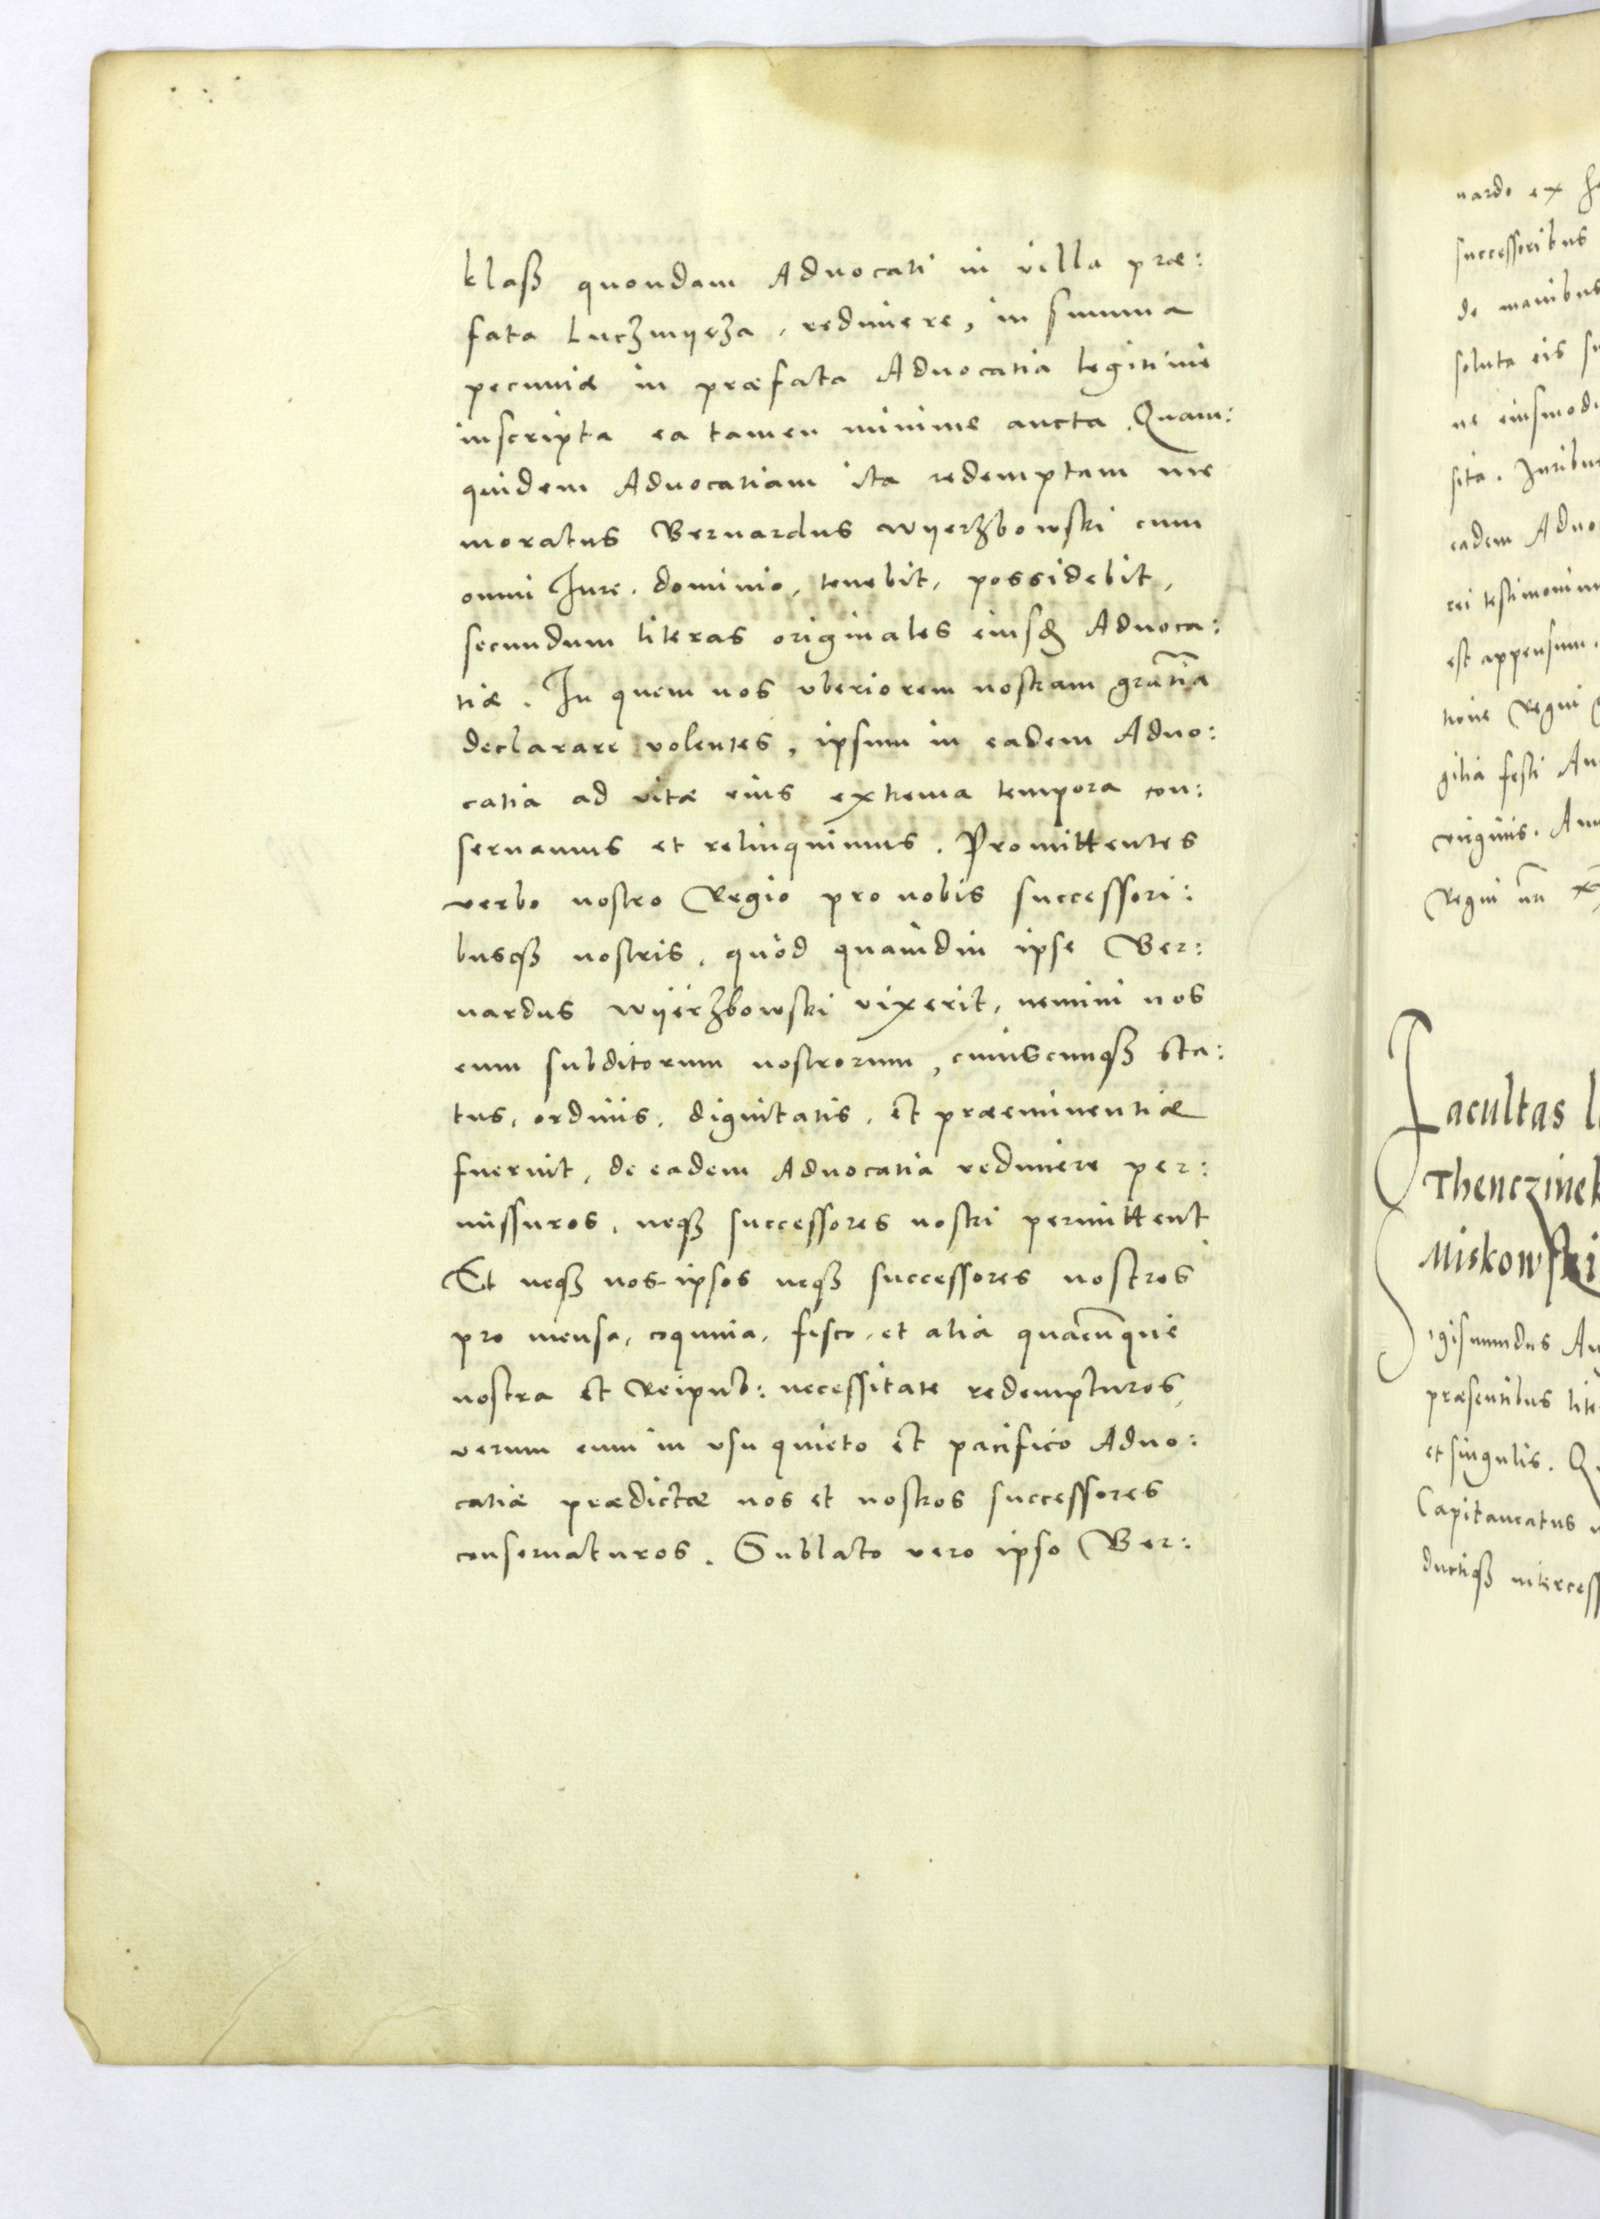 klasß quondam Advocati in villa præ:
fata Luczmyerza, redimere, in summa
pecuniæ in præfata Advocatia legitime
inscripta ea tamen minime aucta. Quam:
quidem Advocatiam ita redemptam me
moratus Bernardus Wyerzbowski cum
omni Jure, dominio, tenebit, possidebit,
secundum literas originales eiusd Advoca:
tiæ. In quem nos vberiorem nostram gratia
declarare volentes, ipsum in eadem Advo:
catia ad vitæ eius extrema tempora con:
seruamus et relinquimus. Promittentes
verbo nostro Regio pro nobis successori:
busqȝ nostris, quòd quamdiu ipse Ber:
nardus Wyerzbowski vixerit, nemini nos
eum subditorum nostrorum, cuiuscunqȝ sta:
tus, ordinis, dignitatis, et præeminentiæ
fuerint, de eadem Advocatia redimere per:
missuros, neqȝ successores nostri permittent.
Et neqȝ nos ipsos neqȝ successores nostros
pro mensa, coquina, fisco, et alia quacunque
nostra et Reipub: necessitate redempturos,
verum eum in vsu quieto et pacifico Advo:
catiæ prædictæ nos et nostros successores
conseruaturos. Sublato vero ipso Ber:
nardo ex
successoribus
de manibus
soluta eis
ne eiusmodi
sita. Juribus
eadem Advo
rei testimonium
est appensum.
tione Regni
gilia festi
virginis.
Regni nri
Facultas
Thenczinek
Miskowski
Sigismundus Au
præsentibus lite
et singulis.
Capitaneatus
ductiqȝ intercess